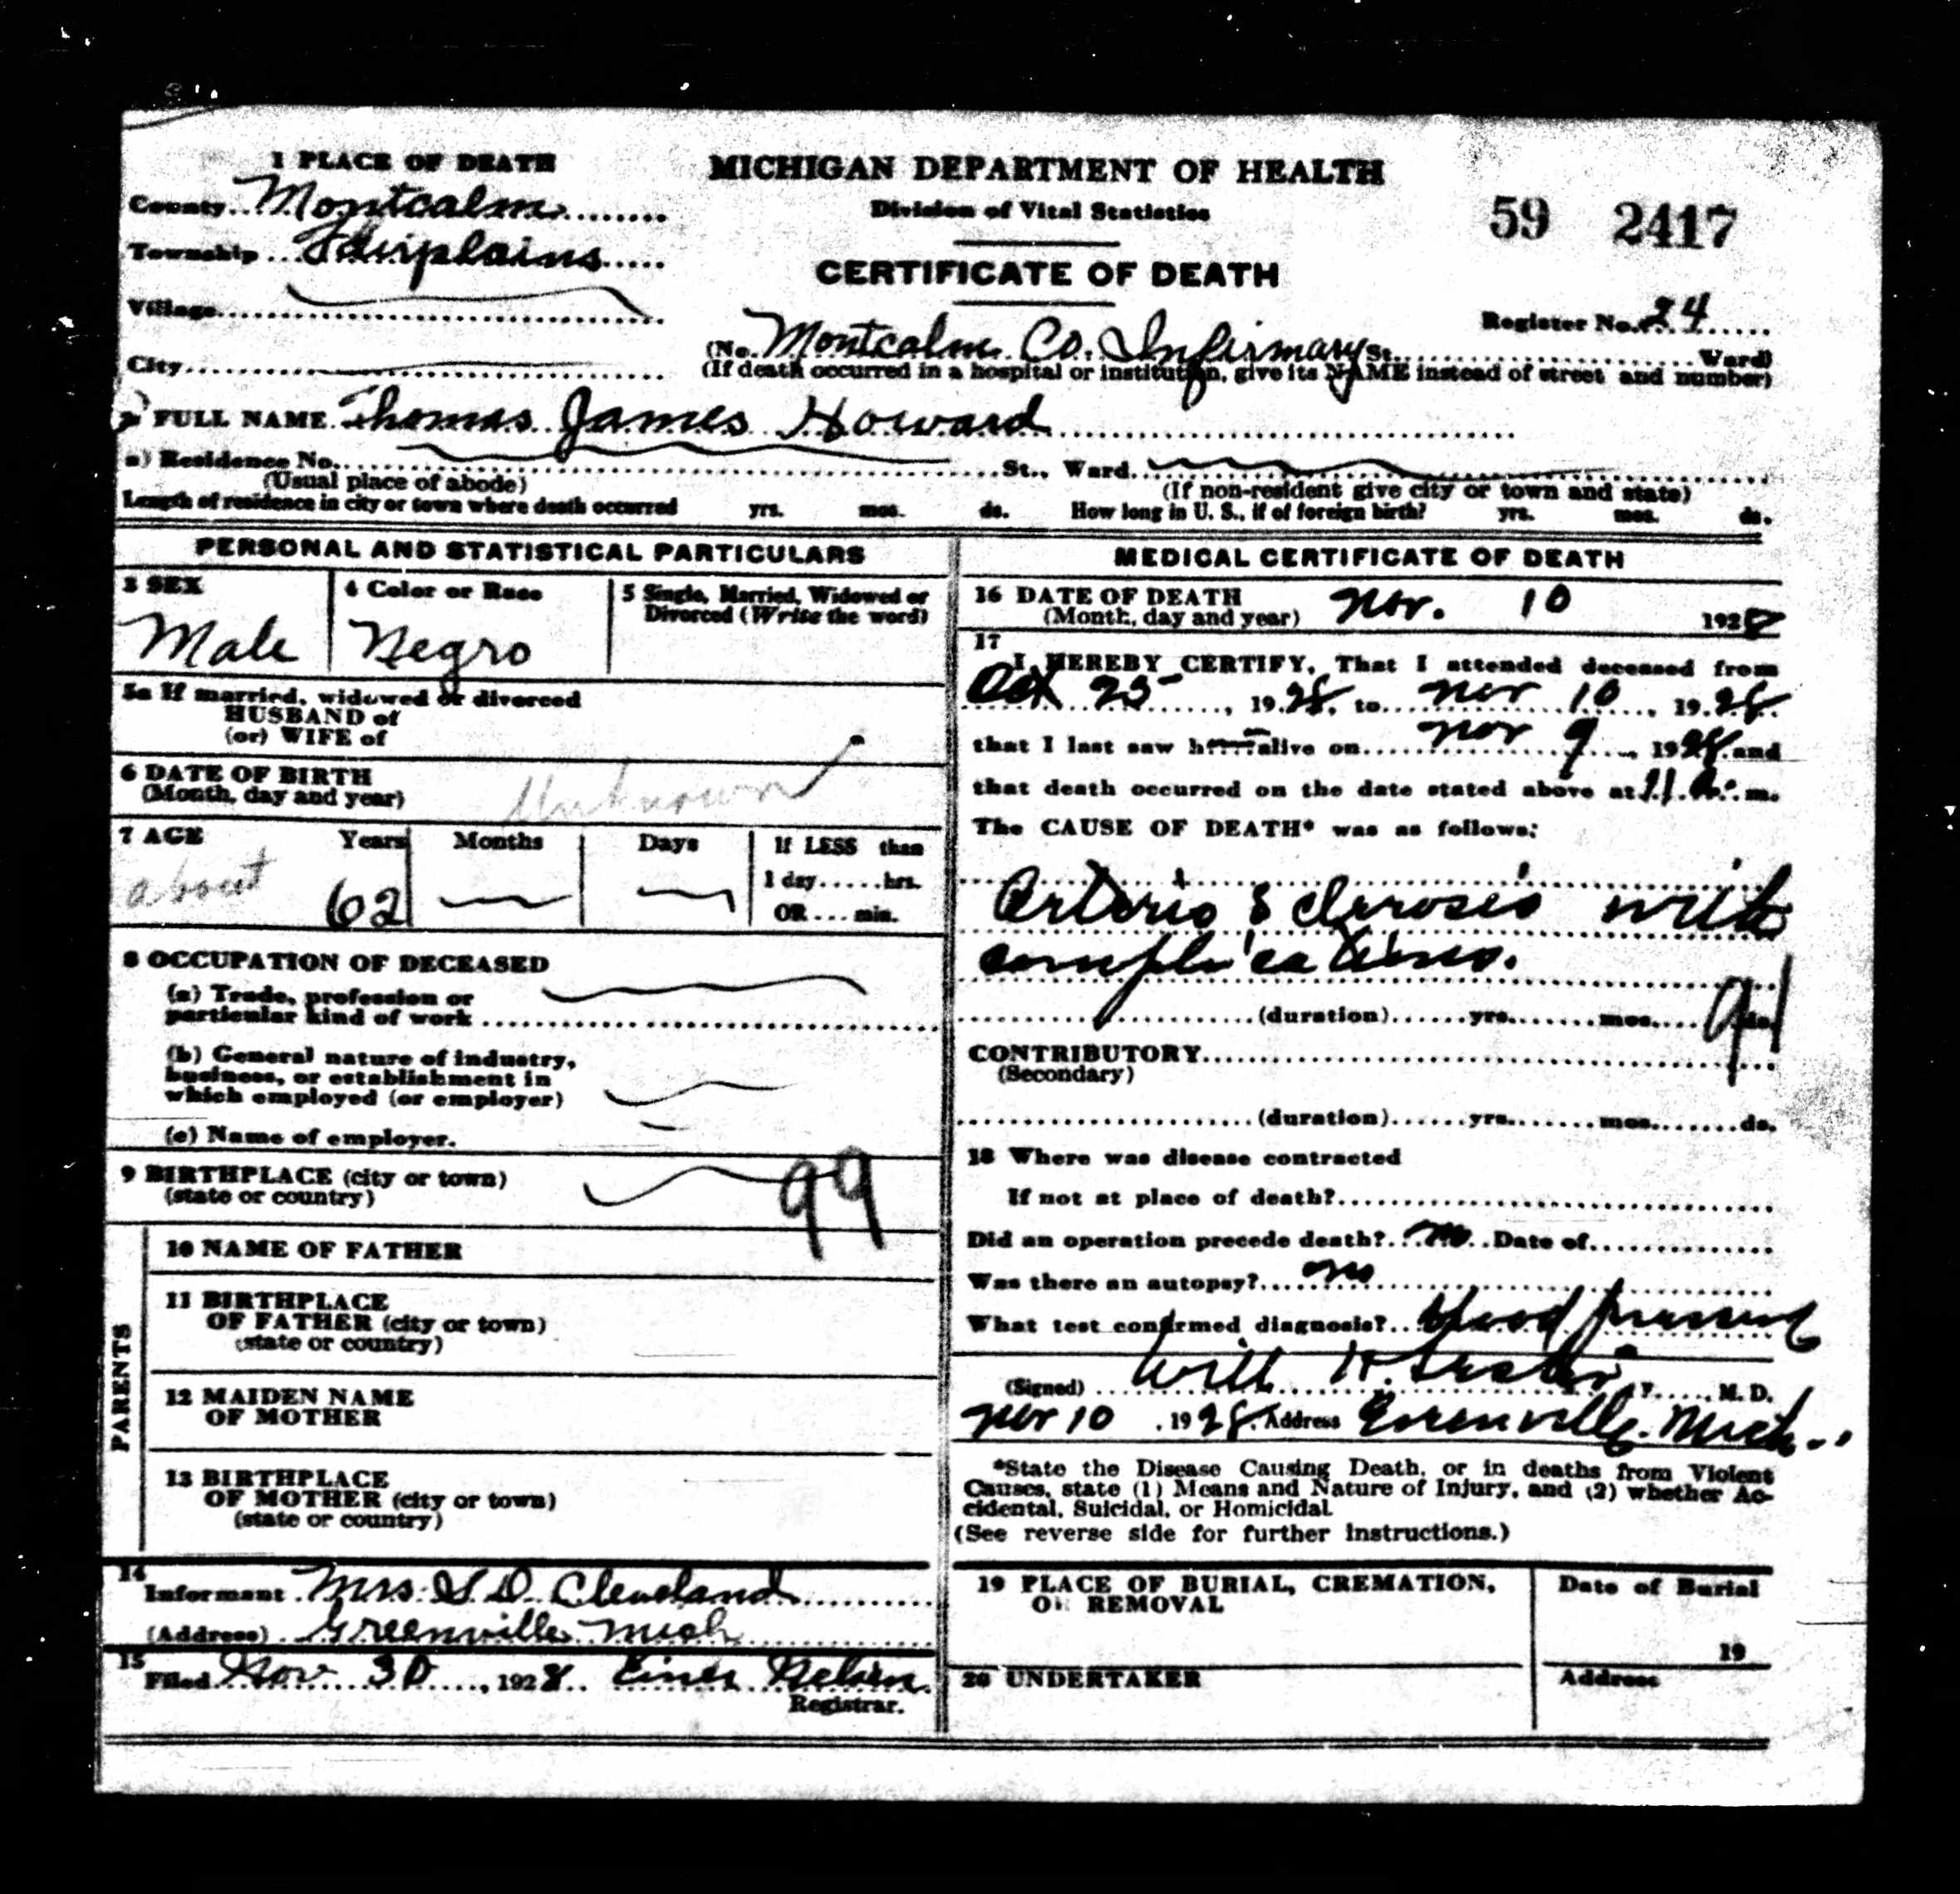 1 PLACE OF DEATH
County Montcalm
Township Fairplains
Village
City
MICHIGAN DEPARTMENT OF HEALTH
Division of Vital Statistics
CERTIFICATE OF DEATH
59 2417
Register No. 24
(No. Montcalm Co. Infirmary St. Ward)
(If death occurred in a hospital or institution, give its NAME instead of street and number)
2 FULL NAME Thomas James Howard
a) Residence No. St., Ward
(Usual place of abode) (If non-resident give city or town and state)
Length of residence in city or town where death occurred yrs. mos. ds. How long in U. S., if of foreign birth? yrs. mos. ds.
PERSONAL AND STATISTICAL PARTICULARS
3 SEX
Male
4 Color or Race
Negro
5 Single, Married, Widowed or
Divorced (Write the word)
5a If married, widowed or divorced
HUSBAND of
(or) WIFE of
6 DATE OF BIRTH
(Month, day and year) Unknown
7 AGE Years Months Days If LESS than
1 day......hrs.
OR....min.
about 62
8 OCCUPATION OF DECEASED
(a) Trade, profession or
particular kind of work
(b) General nature of industry,
business, or establishment in
which employed (or employer)
(c) Name of employer.
9 BIRTHPLACE (city or town)
(state or country)
99
PARENTS
10 NAME OF FATHER
11 BIRTHPLACE
OF FATHER (city or town)
(state or country)
12 MAIDEN NAME
OF MOTHER
13 BIRTHPLACE
OF MOTHER (city or town)
(state or country)
14
Informant Mrs. S. D. Cleveland
(Address) Greenville Mich
15
Filed Nov 30, 1928 Einer Nelson
Registrar.
MEDICAL CERTIFICATE OF DEATH
16 DATE OF DEATH
(Month, day and year) Nov. 10 1928
17
I HEREBY CERTIFY, That I attended deceased from
Oct 25, 1928, to Nov 10, 1928
that I last saw h alive on Nov 9, 1928 and
that death occurred on the date stated above at 11 A. m.
The CAUSE OF DEATH* was as follows:
Arterio Sclerosis with
complications.
(duration) yrs. mos. ds.
91
CONTRIBUTORY
(Secondary)
(duration) yrs. mos. ds.
18 Where was disease contracted
If not at place of death?
Did an operation precede death? no Date of
Was there an autopsy? no
What test confirmed diagnosis? Blood pressure
(Signed) Will H. M. D.
Nov 10, 1928 Address Greenville, Mich.
*State the Disease Causing Death, or in deaths from Violent
Causes, state (1) Means and Nature of Injury, and (2) whether Ac-
cidental, Suicidal, or Homicidal
(See reverse side for further instructions.)
19 PLACE OF BURIAL, CREMATION,
OR REMOVAL
Date of Burial
19
20 UNDERTAKER
Address